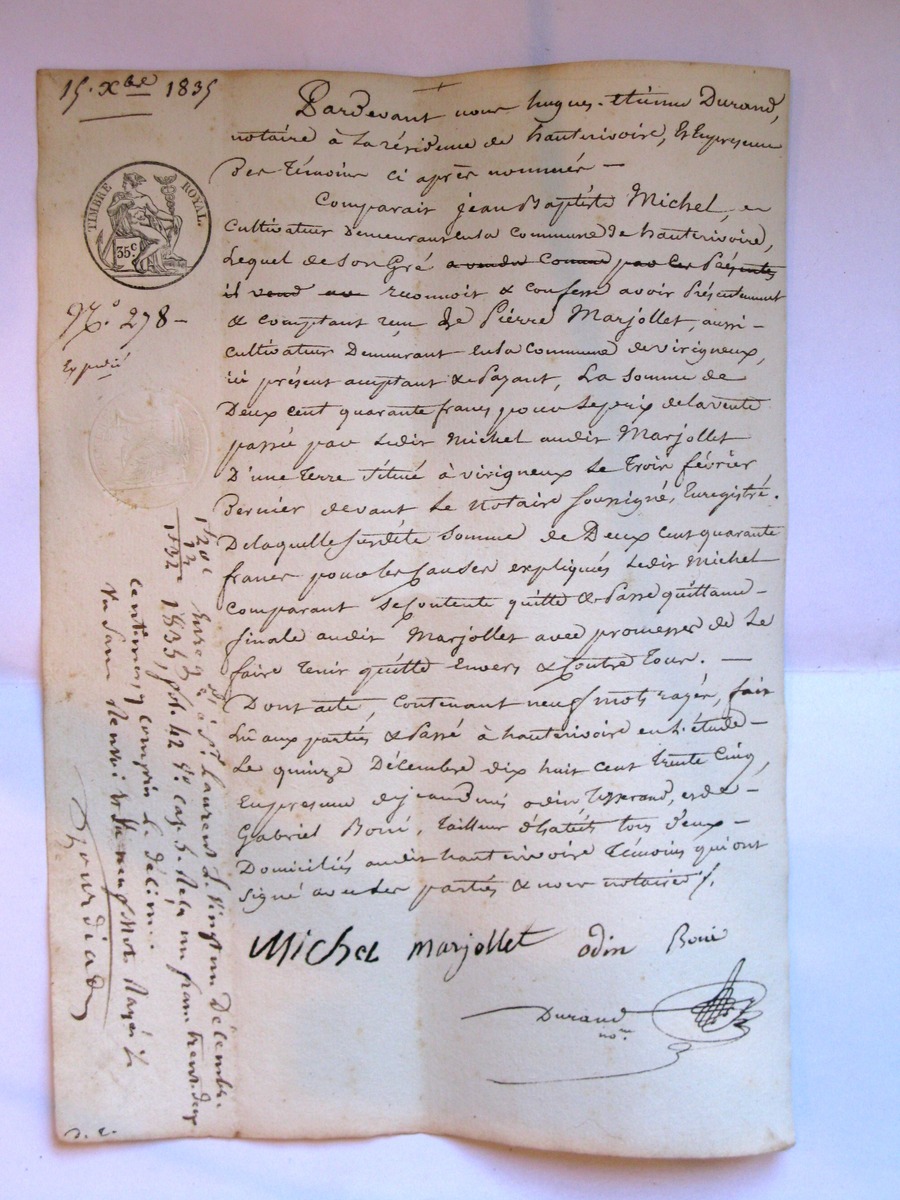 15. Xbre 1835
TIMBRE ROYAL.
35c
No. 278 –
Expédié
Pardevant nous hugues-étienne Durand,
notaire à La résidence de hauterivoire, & En présence
Des Témoins ci après nommés —
Comparait jean Baptiste Michel,
Cultivateur Demeurant en la Commune de hauterivoire,
Lequel de Son Gré a vendu Comme par ces Présentes
il vend au reconnoit & confesse avoir Présentement
& comptant reçu de Pierre Marjollet, aussi –
cultivateur Demeurant en la commune de virigneux,
ici présent acceptant & Payant, La somme de
Deux cent quarante francs pour Le prix de la vente
passée par Ledit Michel audit Marjollet
D'une Terre Située à virigneux Le Trois février
Dernier devant Le Notaire Soussigné, Enregistré.
De laquelle Susdite Somme de Deux Cent quarante
francs pour les Causes expliquées Ledit Michel
comparant Se Contente quitte & Passe quittance –
finale audit Marjollet avec promesses de Le
faire Tenir quitte Envers & Contre Tous. —
Dont acte, Contenant neuf mots rayés, fait
Lû aux parties & Passé à hauterivoire en L'étude –
Le quinze Décembre dix huit Cent Trente Cinq,
En présence de jean odin, Tisserand, et de –
Gabriel Boni, Tailleur d'habits tous Deux –
Domiciliés audit hauterivoire Témoins qui ont
Signé avec Les parties & nous notaire ./.
Michel Marjollet odin Boni
Durand
nore.
1f 20c
12
1f 32
Enregé. à St. Laurent L. Vingt un Décembre
1835, fol. 42 Vo. cas. 5. Reçu un franc trente deux
Centimes y compris Le décime.